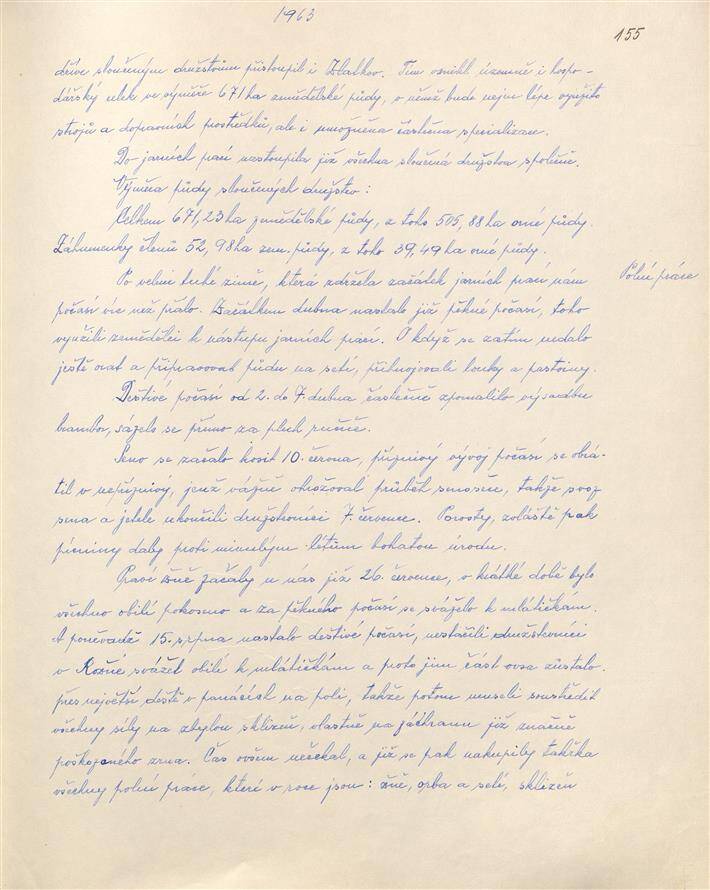 1963
155
dříve sloučeným družstvům přistoupil i Zlatkov. Tím vznikl územně i hospo-
dářský celek ve výměře 671 ha zemědělské půdy, v němž bude nejen lépe využito
strojů a dopravních prostředků, ale i umožněna částečná specializace.
Do jarních prací nastoupila již všechna sloučená družstva společně.
Výměra půdy sloučených družstev:
Celkem 671,23 ha zemědělské půdy, z toho 505,88 ha orné půdy.
Záhumenky členů 52,98 ha zem. půdy, z toho 39,49 ha orné půdy.
Polní práce
Po velmi tuhé zimě, která zdržela začátek jarních prací nám
počasí víc než přálo. Začátkem dubna nastalo již pěkné počasí, toho
využili zemědělci k nástupu jarních prací. I když se zatím nedalo
ještě orat a připravovat půdu na setí, přihnojovali louky a pastviny.
Deštivé počasí od 2. do 7. dubna částečně zpomalilo výsadbu
brambor, sázelo se přímo za pluh ručně.
Seno se začalo kosit 10. června, příznivý vývoj počasí se obrá-
til v nepříznivý, jenž vážně ohrožoval průběh senoseče, takže svoz
sena a jetele ukončili družstevníci 7. července. Porosty, zvláště pak
pícniny daly proti minulým létům bohatou úrodu.
Pravé žně začaly u nás již 26. července, v krátké době bylo
všechno obilí pokoseno a za pěkného počasí se sváželo k mlátičkám.
A poněvadž 15. srpna nastalo deštivé počasí, nestačili družstevníci
v Rožné svážet obilí k mlátičkám a proto jim část ovsa zůstala
přes největší deště v panácích na poli, takže potom museli soustředit
všechny síly na zbylou sklizeň, vlastně na záchranu již značně
poškozeného zrna. Čas ovšem nečekal, a již se pak nakupily takřka
všechny polní práce, které v roce jsou: žně, orba a setí, sklizeň